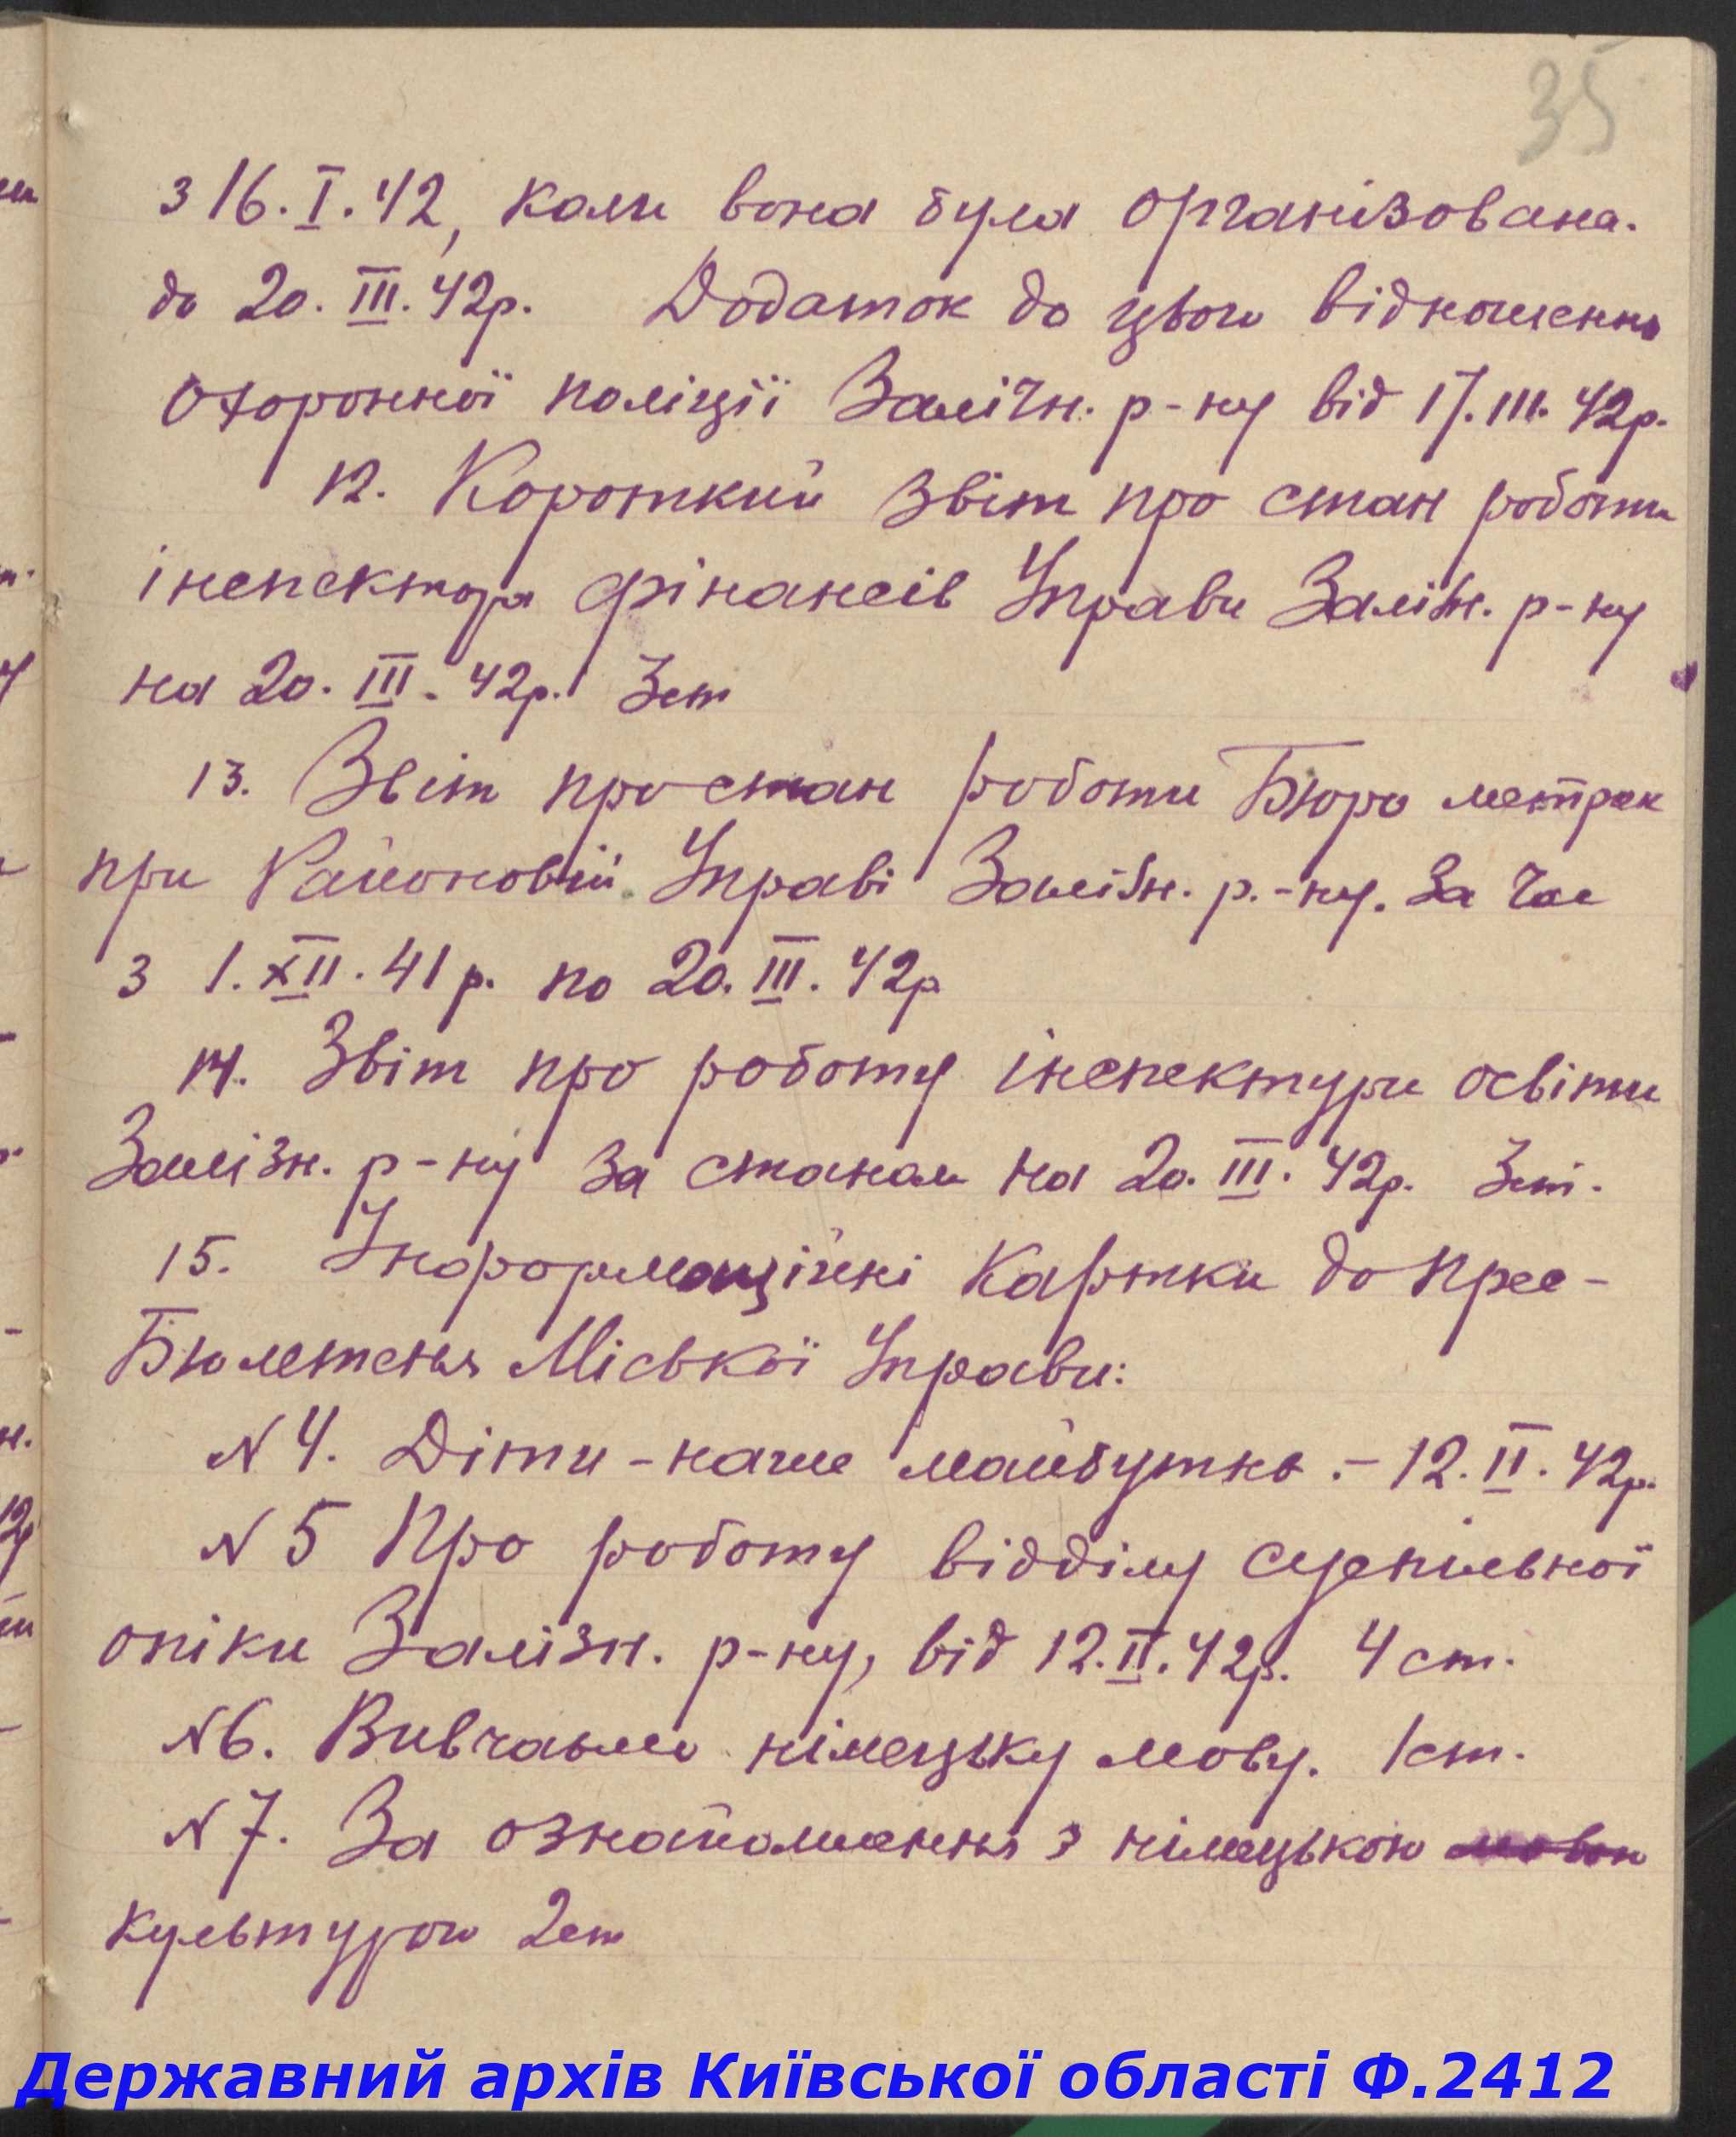 35
з 16.I.42, коли вона була організована.
до 20.III.42р. Додаток до цього відношення
охоронної поліції Залізн. р-ну від 17.III.42р.
12. Короткий звіт про стан роботи
інспектора фінансів Управи Залізн. р-ну
на 20.III.42р. 3ст
13. Звіт про стан роботи Бюро метрик
при Районовій Управі Залізн. р.-ну. За час
з 1.XII.41р. по 20.III.42р
14. Звіт про роботу інспектури освіти
Залізн. р-ну за станом на 20.III.42р. 3ст.
15. Інформаційні картки до прес-
Бюлетеня Міської Управи:
N 4. Діти - наше майбутнє. - 12.II.42р.
N 5 Про роботу відділу суспільної
опіки Залізн. р-ну, від 12.II.42р. 4 ст.
N 6. Вивчаємо німецьку мову. 1ст.
N 7. За ознайомлення з німецькою мовою
культурою 2ст
Державний архів Київської області Ф.2412